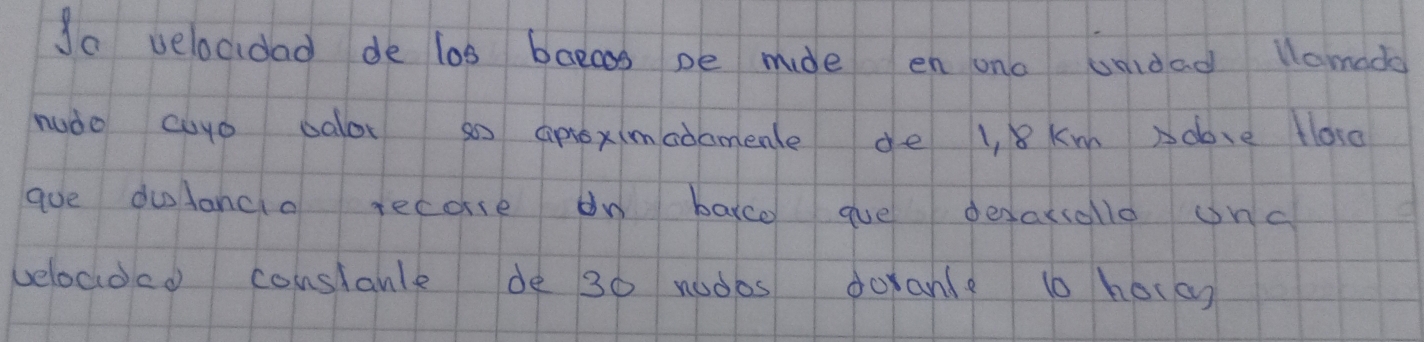 La velocidad de los barcos se mide en una unidad llamada
nudo cuyo valor es aproximadamente de 1,8 Km sobre Hora
que distancia recorre un barco que desarrolla una
velocidad constante de 30 nudos durante 10 horas